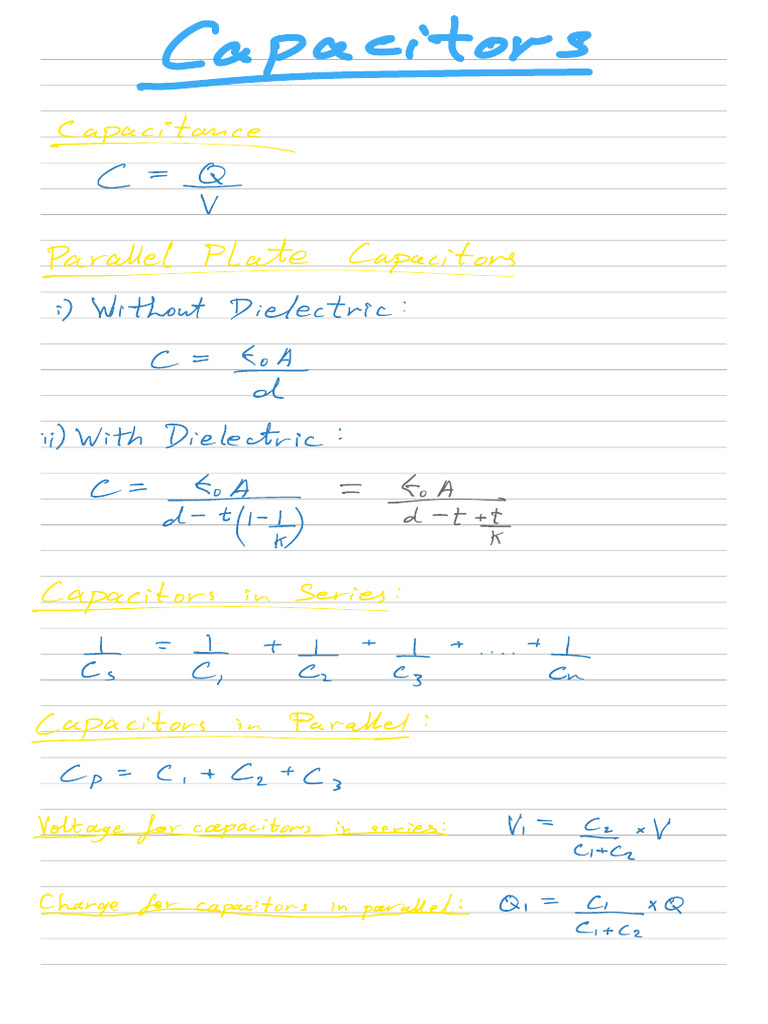 Capacitors
Capacitance
C = Q/V
Parallel Plate Capacitors
i) Without Dielectric:
C = ε₀A/d
ii) With Dielectric:
C = ε₀A/(d-t(1-1/k)) = ε₀A/(d-t+t/k)
Capacitors in Series:
1/Cs = 1/C₁ + 1/C₂ + 1/C₃ + .... + 1/Cn
Capacitors in Parallel:
Cp = C₁ + C₂ + C₃
Voltage for capacitors in series: V₁ = C₂/(C₁+C₂) × V
Charge for capacitors in parallel: Q₁ = C₁/(C₁+C₂) × Q